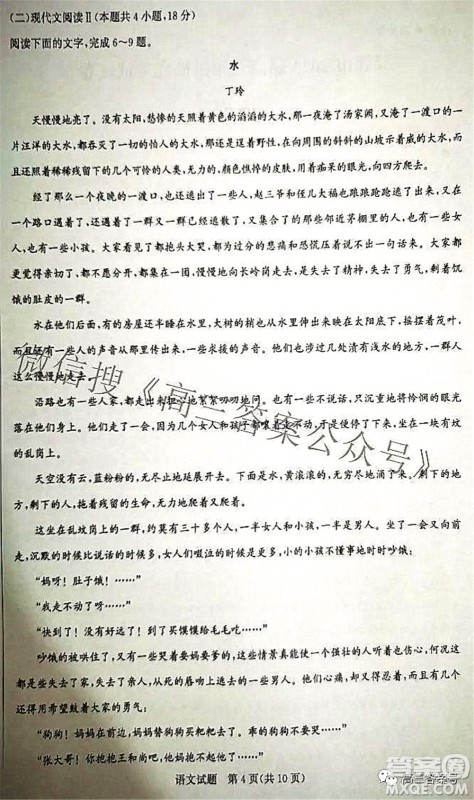 (二)现代文阅读Ⅱ(本题共4小题,18分)
阅读下面的文字,完成6~9题。
水
丁玲
天慢慢地亮了。没有太阳,愁惨的天照着黄色的滔滔的大水,那淹了汤家阙,又淹了一渡口的一
片汪洋的大水,那吞灭了一切的怕人的大水,那还逞着野性,在向周围的斜斜的山坡示着威的大水,而
且还照着稀稀残留下的几个可怜的人类,无力的,颜色憔悴的皮肤,用着痴呆的眼光,向四方爬去。
经了那么一个夜晚的一渡口,也还逃出了一些人,赵三爷和侄儿大福也踉踉跄跄逃了出来,又在
一个路口遇着了,还遇着了一群又一群已经散了又集的,又集合了的那些邻近茅棚里的人,也有一些女
人,也有一些小孩。大家看见了都抱头大哭,都为过分的悲痛和恐慌压着说不出一句话来。大家都
更觉得亲切了,都不愿分开,都集在一团,慢慢地向长岭岗走去,是失去了精神,失去了勇气,剩着饥
饿的肚皮的一群。
水在他们后面,有的房屋还半睡在水里,大树的梢也从水里伸出来映在太阳底下,摇摆着茂叶,
而且还有一些人的声音从那里传出来,一些求援的声音。他们也涉过几处清有浅水的地方,一群人
这么慢慢地走去。
沿路也有一些人家,都走出来担心地絮絮叨叨地问。也有一些不说话,只沉重地将怜悯的眼光
落在他们身上。他们走了一会,因为几个女人和孩子都不能够支持的原故,于是便停了下来,坐在一块有坟
的乱岗上。
天空没有云,蓝粉粉的,无尽止地延展开去。下面是水,黄滚滚的,无穷尽地涌了来。剩下的地
方,剩下的人,拖着残留的生命,无力地爬又爬着。
这坐在乱坟岗上的一群,约莫有三十多个人,一半女人和小孩,一半是男人。坐了一会又向前
走,沉默的时候比说话的时候多,女人们啜泣的时候是更多,小的小孩不懂事地时时吵饿:
“妈呀!肚子饿!……”
“我走不动了呀……”
“快到了!没有好远了!到了买馍馍给毛毛吃……”
吵饿的被哄住了,又有一些哭着要妈要爹的,这些情景真能使一个强壮的人听着也伤心,何况这
都是些失去了家,失去了亲人,从死的唇吻上逃去的一些人。他们心痛,却又得忍着,而且有了孩子
还得用希望鼓着大家的勇气:
“狗狗!妈妈在前边,妈妈替狗狗买粑粑去了。乖的狗狗不要哭……”
“张大哥!你抱抱王和尚吧,他妈抱不起他了……”
语文试题 第4页(共10页)
微信搜《高三答案公众号》
高三答案号
答案圈
MXQE.COM